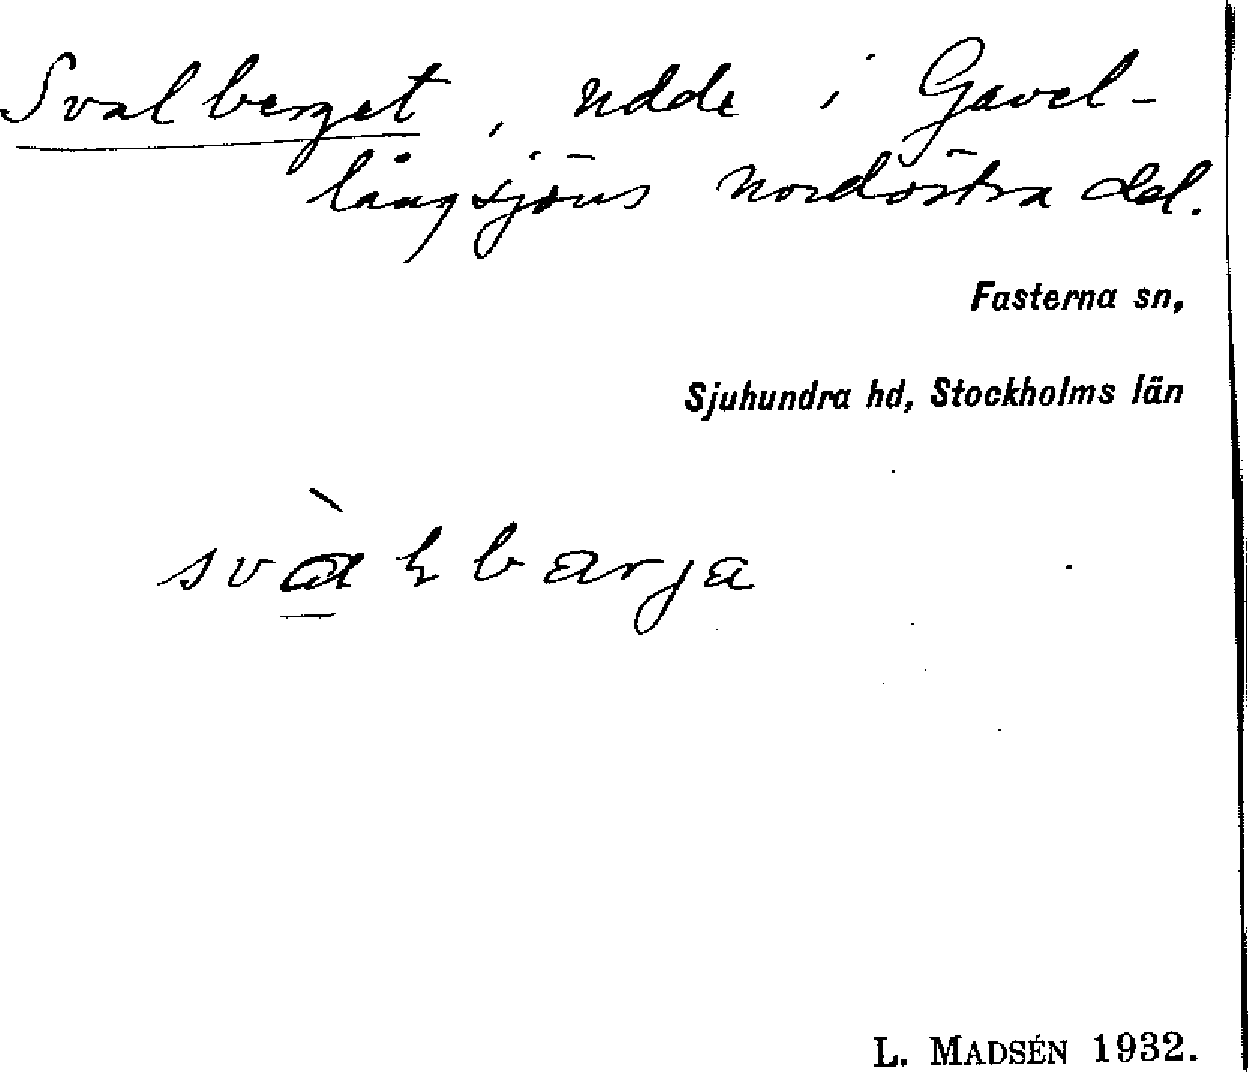 Svalberget, udde i Gavel-
långsjöns nordöstra del.
Fasterna sn,
Sjuhundra hd, Stockholms län
L. MADSÉN 1932.